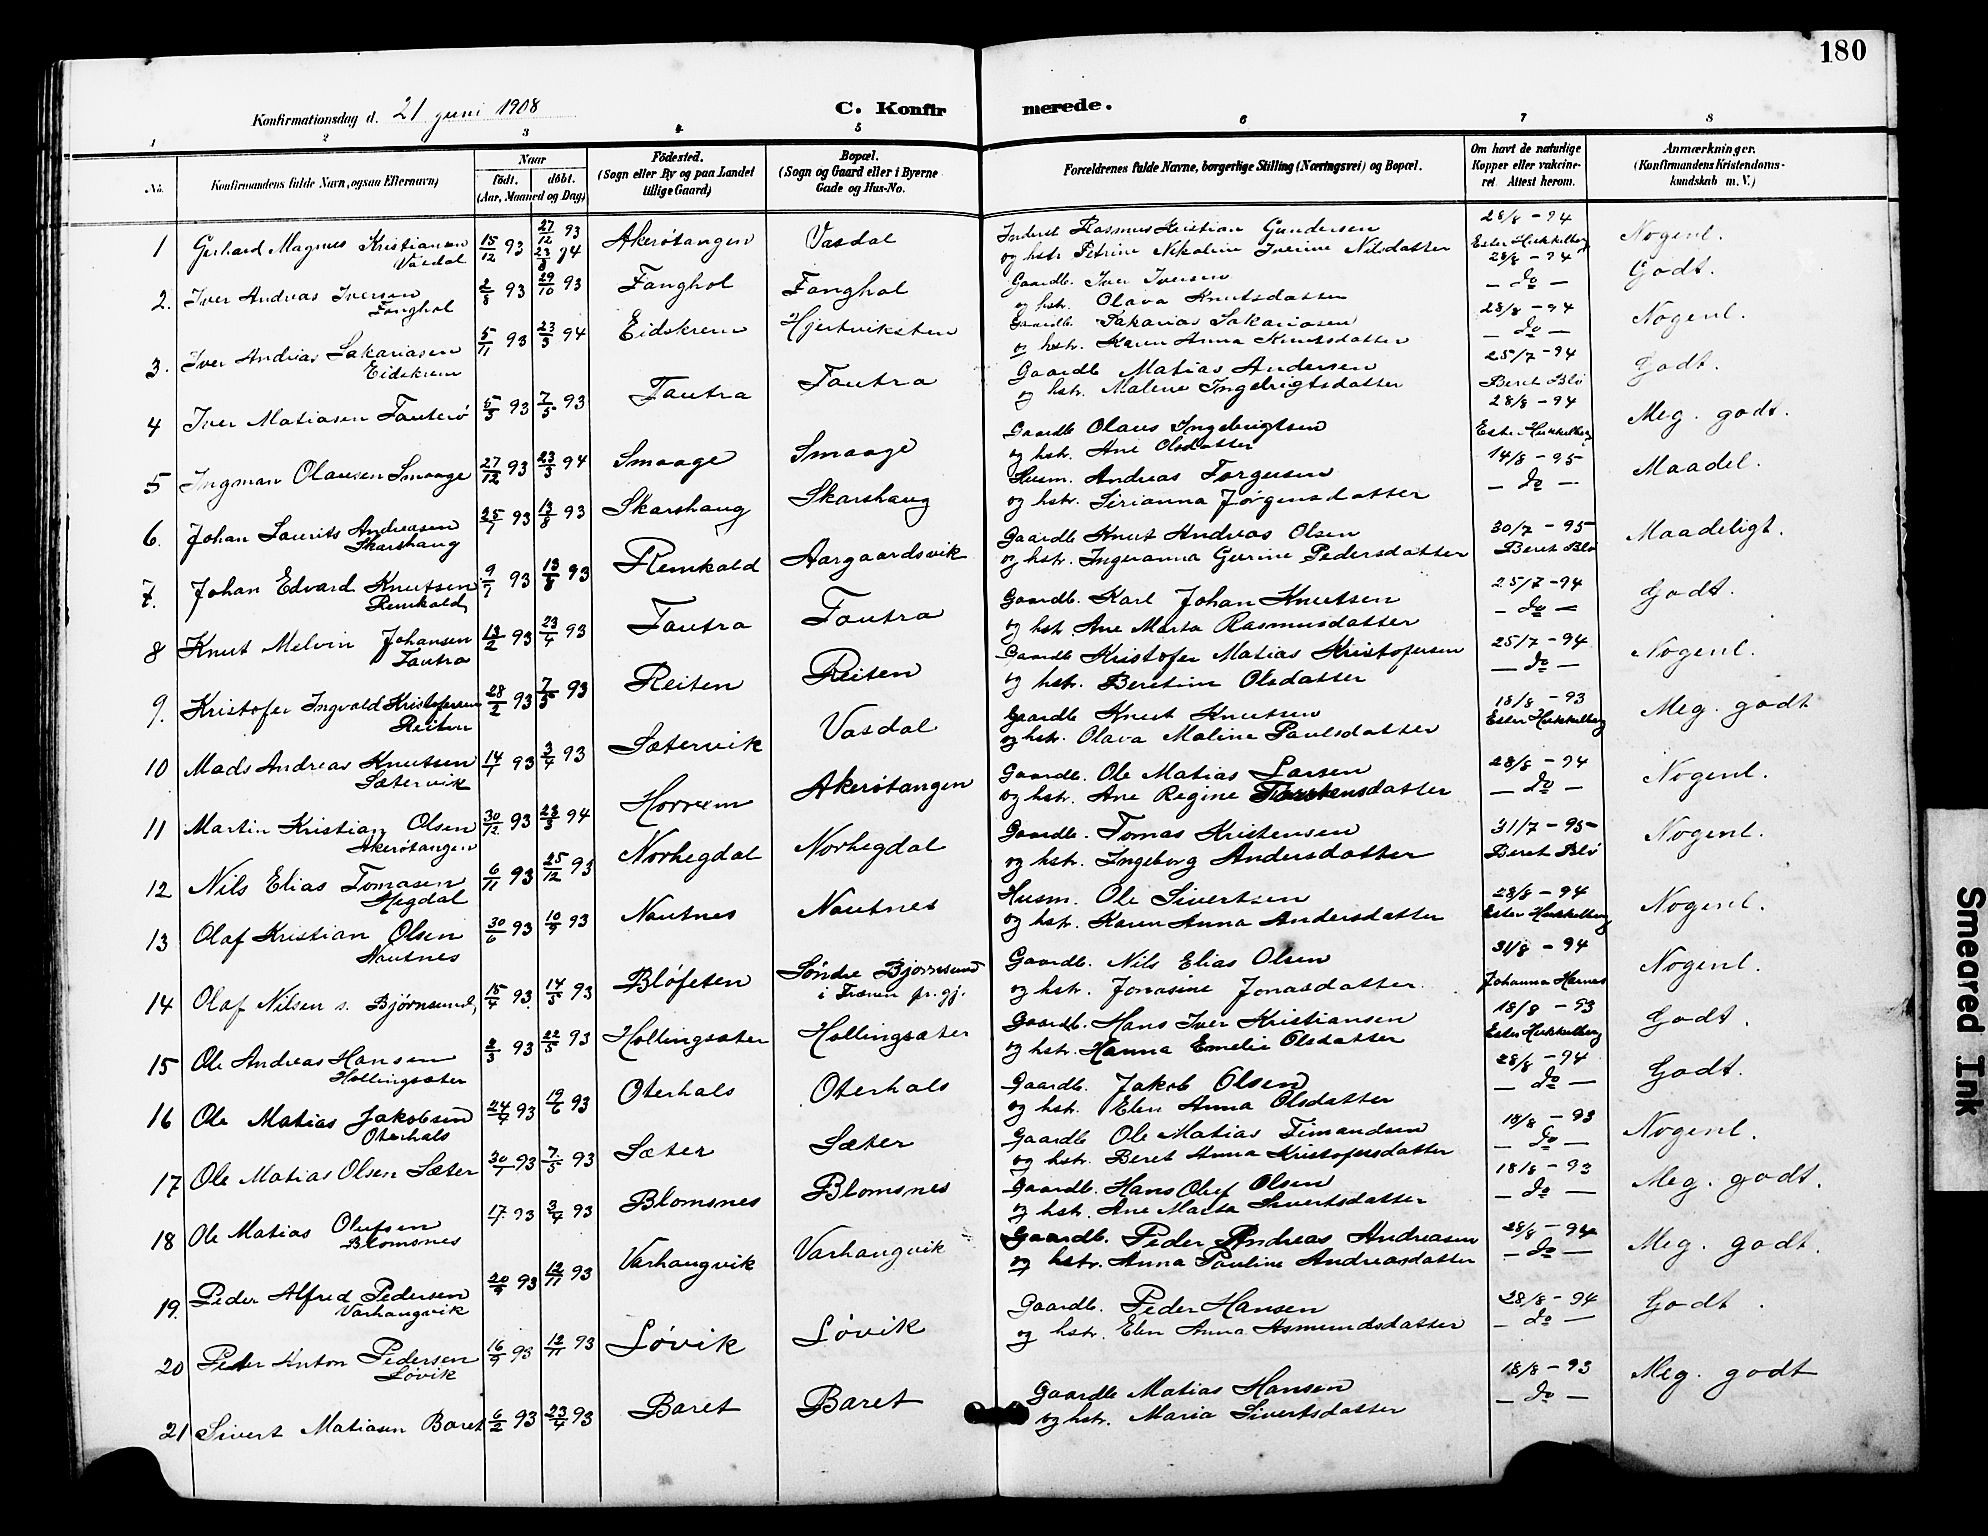 180
Konfirmationsdag d. 21 juni 1908
C. Konfirmerede.
1 2 3 4 5 6 7 8
No. Konfirmandens fulde Navn, ogsaa Efternavn) Naar født. døbt. (Aar, Maaned og Dag) Fødested. (Sogn eller By og paa Landet tillige Gaard) Bopæl. (Sogn og Gaard eller i Byerne Gade og Hus-No. Forældrenes fulde Navne, borgerlige Stilling (Næringsvei) og Bopæl. Om havt de naturlige Kopper eller vakcineret Attest herom. Anmærkninger. (Konfirmandens Kristendomskundskab m. V.)
1 Gerhard Magnus Kristiansen Vasdal 15/12 93 27/12 93 23/3 94 Akerøtangen Vasdal Inderst Rasmus Kristian Gundersen og hstr. Petrine Nikoline Iverine Nilsdatter 28/8 - 94 Ester Hukkelberg Nogenl.
2. Iver Andreas Iversen Fanghol 2/8 93 29/10 93 Fanghol Fanghol Gaardb. Iver Iversen og hstr. Olava Knutsdatter 28/8 - 94 - do - Godt.
3. Iver Andreas Sakariasen Eidskrem 5/11 93 23/3 94 Eidskrem Hjertviksten Gaardb. Sakarias Sakariasen og hstr. Karen Anna Knutsdatter 28/8 - 94 - do - Nogenl.
4 Iver Matiasen Tauterø 5/3 93 7/5 93 Tautra Tautra Gaardb Matias Andersen og hstr. Malene Ingebrigtsdatter 25/7 - 94 Beret Blø Godt.
5 Ingman Olausen Smaage 27/12 93 23/3 94 Smaage Smaage Gaardb Olaus Ingebrigtsen og hstr. Ane Olsdatter 28/8 - 94 Ester Hukkelberg Meg. godt.
6. Johan Laurits Andreasen Skarshaug 25/7 93 13/8 93 Skarshaug Skarshaug Husm. Andreas Torgersen og hstr. Sirianna Jørgensdatter 14/8 - 95 - do - Maadel.
7. Johan Edvard Knutsen Remkald 9/7 93 13/8 93 Remkald Aargaardsvik Gaardb Knut Andreas Olsen og hstr. Ingeranna Gurine Pedersdatter 30/7 - 95 Beret Blø Maadeligt.
8 Knut Melvin Johansen Tautra 13/2 93 23/4 93 Tautra Tautra Gaardb. Karl Johan Knutsen og hstr Ane Marta Rasmusdatter 25/7 - 94 - do - Godt.
9. Kristofer Ingvald Kristofersen Reiten 28/2 93 7/5 93 Reiten Reiten Gaardb Kristofer Matias Kristofersen og hstr. Beretine Olsdatter 25/7 - 94 - do - Nogenl.
10 Mads Andreas Knutsen Sætervik 14/1 93 3/4 93 Sætervik Vasdal Gaardb Knut Knutsen og hstr. Olava Maline Paulsdatter 18/8 - 93 Ester Hukkelberg Meg. godt
11 Martin Kristian Olsen Akerøtangen 30/12 93 23/3 94 Horrem Akerøtangen Gaardb. Ole Matias Larsen og hstr. Ane Regine Torstensdatter 28/8 - 94 - do - Nogenl.
12 Nils Elias Tomasen Hegdal 6/11 93 25/12 93 Norhegdal Norhegdal Gaardb. Tomas Kristensen og hstr. Ingeborg Andersdatter 31/7 - 95 Beret Blø Nogenl.
13 Olaf Kristian Olsen Nautnes 30/6 93 10/9 93 Nautnes Nautnes Husm. Ole Sivertsen og hstr. Karen Anna Andersdatter 28/8 - 94 Ester Hukkelberg Nogenl.
14 Olaf Nilsen s. Bjørnsund, 15/4 93 14/5 93 Bløfeten Søndre Bjørnsund i Fræna pr.gj. Gaardb. Nils Elias Olsen og hstr. Jonasine Jonasdatter 31/8 - 94 Johanna Harnes Nogenl.
15 Ole Andreas Hansen Hollingsæter 2/3 93 22/5 93 Hollingsæter Hollingsæter Gaardb. Hans Iver Kristiansen og hstr. Hanna Emelie Olsdatter 18/8 - 93 Ester Hukkelberg Godt.
16 Ole Matias Jakobsen Oterhals 24/4 93 19/6 93 Oterhals Oterhals Gaardb. Jakob Olsen og hstr. Elen Anna Olsdatter 28/8 - 94 - do - Godt.
17 Ole Matias Olsen Sæter 30/1 93 7/5 93 Sæter Sæter Gaardb Ole Matias Timandsen og hstr. Beret Anna Kristofersdatter 18/8 - 93 - do - Nogenl.
18 Ole Matias Olufsen Blomsnes 17/1 93 3/4 93 Blomsnes Blomsnes Gaardb. Hans Oluf Olsen og hstr. Ane Marta Sivertsdatter 18/8 - 93 - do - Meg. godt.
19. Peder Alfred Pedersen Varhaugvik 20/9 93 12/11 93 Varhaugvik Varhaugvik Gaardb. Peder Andreas Andreasen og hstr. Anna Pauline Andreasdatter 28/8 - 94 - do - Meg. godt.
20 Peter Anton Pedersen Løvik 16/9 93 12/11 93 Løvik Løvik Gaardb. Peder Hansen og hstr. Elen Anna Asmundsdatter 28/8 - 94 - do - Godt.
21 Sivert Matiasen Baret 6/2 93 23/4 93 Baret Baret Gaardb Matias Hansen og hstr. Maria Sivertsdatter 18/8 - 93 - do - Meg. godt
Smeared Ink